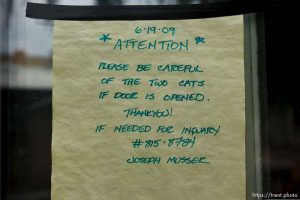 6-19-09
* ATTENTION *
PLEASE BE CAREFUL
OF THE TWO CATS
IF DOOR IS OPENED.
THANKYOU!
IF NEEDED FOR INQUARY
# 815-8784
JOSEPH MUSSER
https://trent.photo